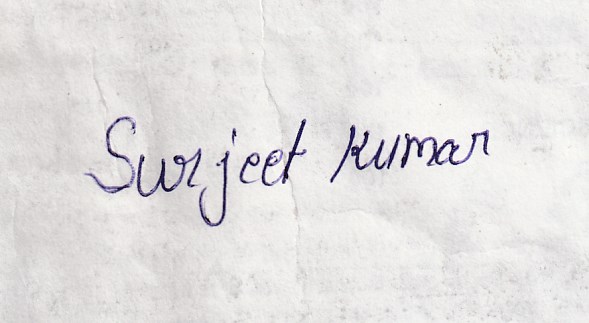 Surjeet Kumar